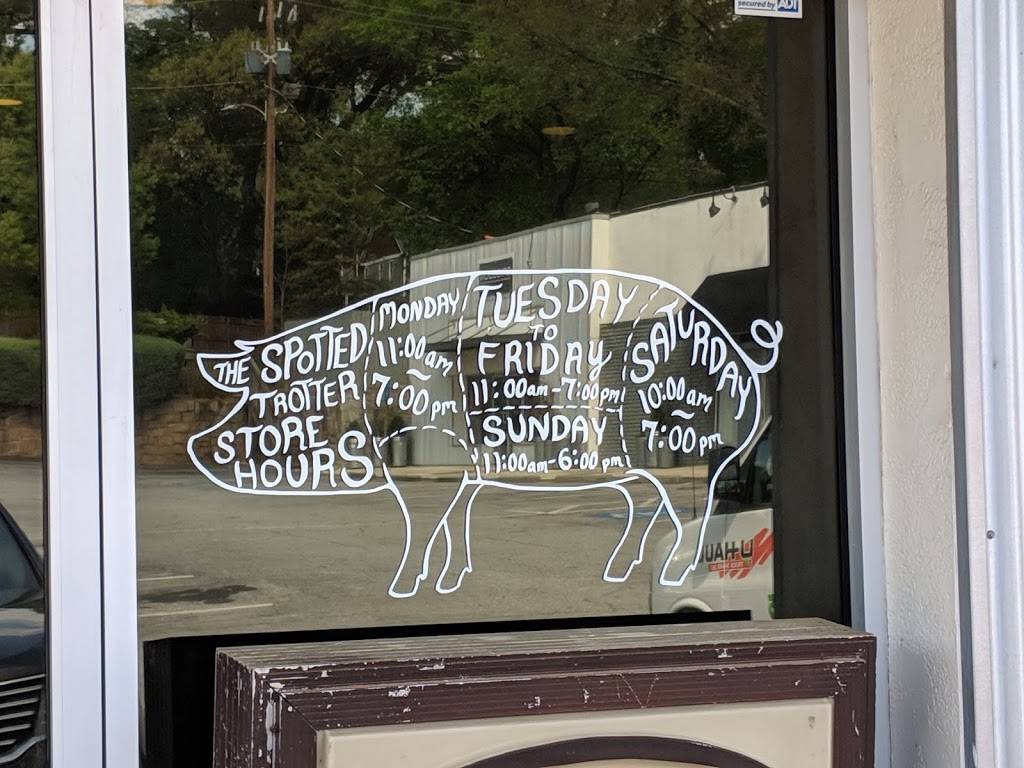 secured by ADT
THE SPOTTED
TROTTER
STORE
HOURS
MONDAY
11:00am
~
7:00pm
TUESDAY
TO
FRIDAY
11:00am-7:00pm
SUNDAY
11:00am-6:00pm
SATURDAY
10:00am
~
7:00pm
UAH-U